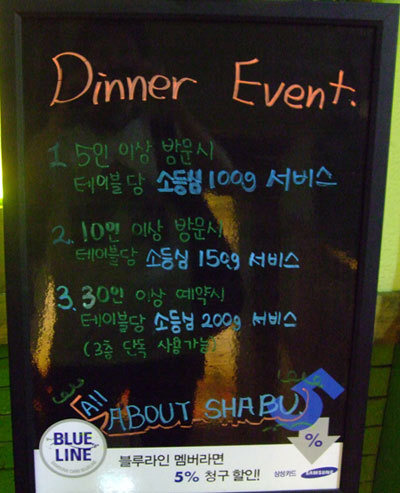 Dinner Event.
1. 5인 이상 방문시
테이블당 소등심 100g 서비스
2. 10인 이상 방문시
테이블당 소등심 150g 서비스
3. 30인 이상 예약시
테이블당 소등심 200g 서비스
(3층 단독 사용가능)
All
ABOUT SHABU
BLUE
LINE
블루라인 멤버라면
5% 청구 할인!
%
삼성카드 SAMSUNG